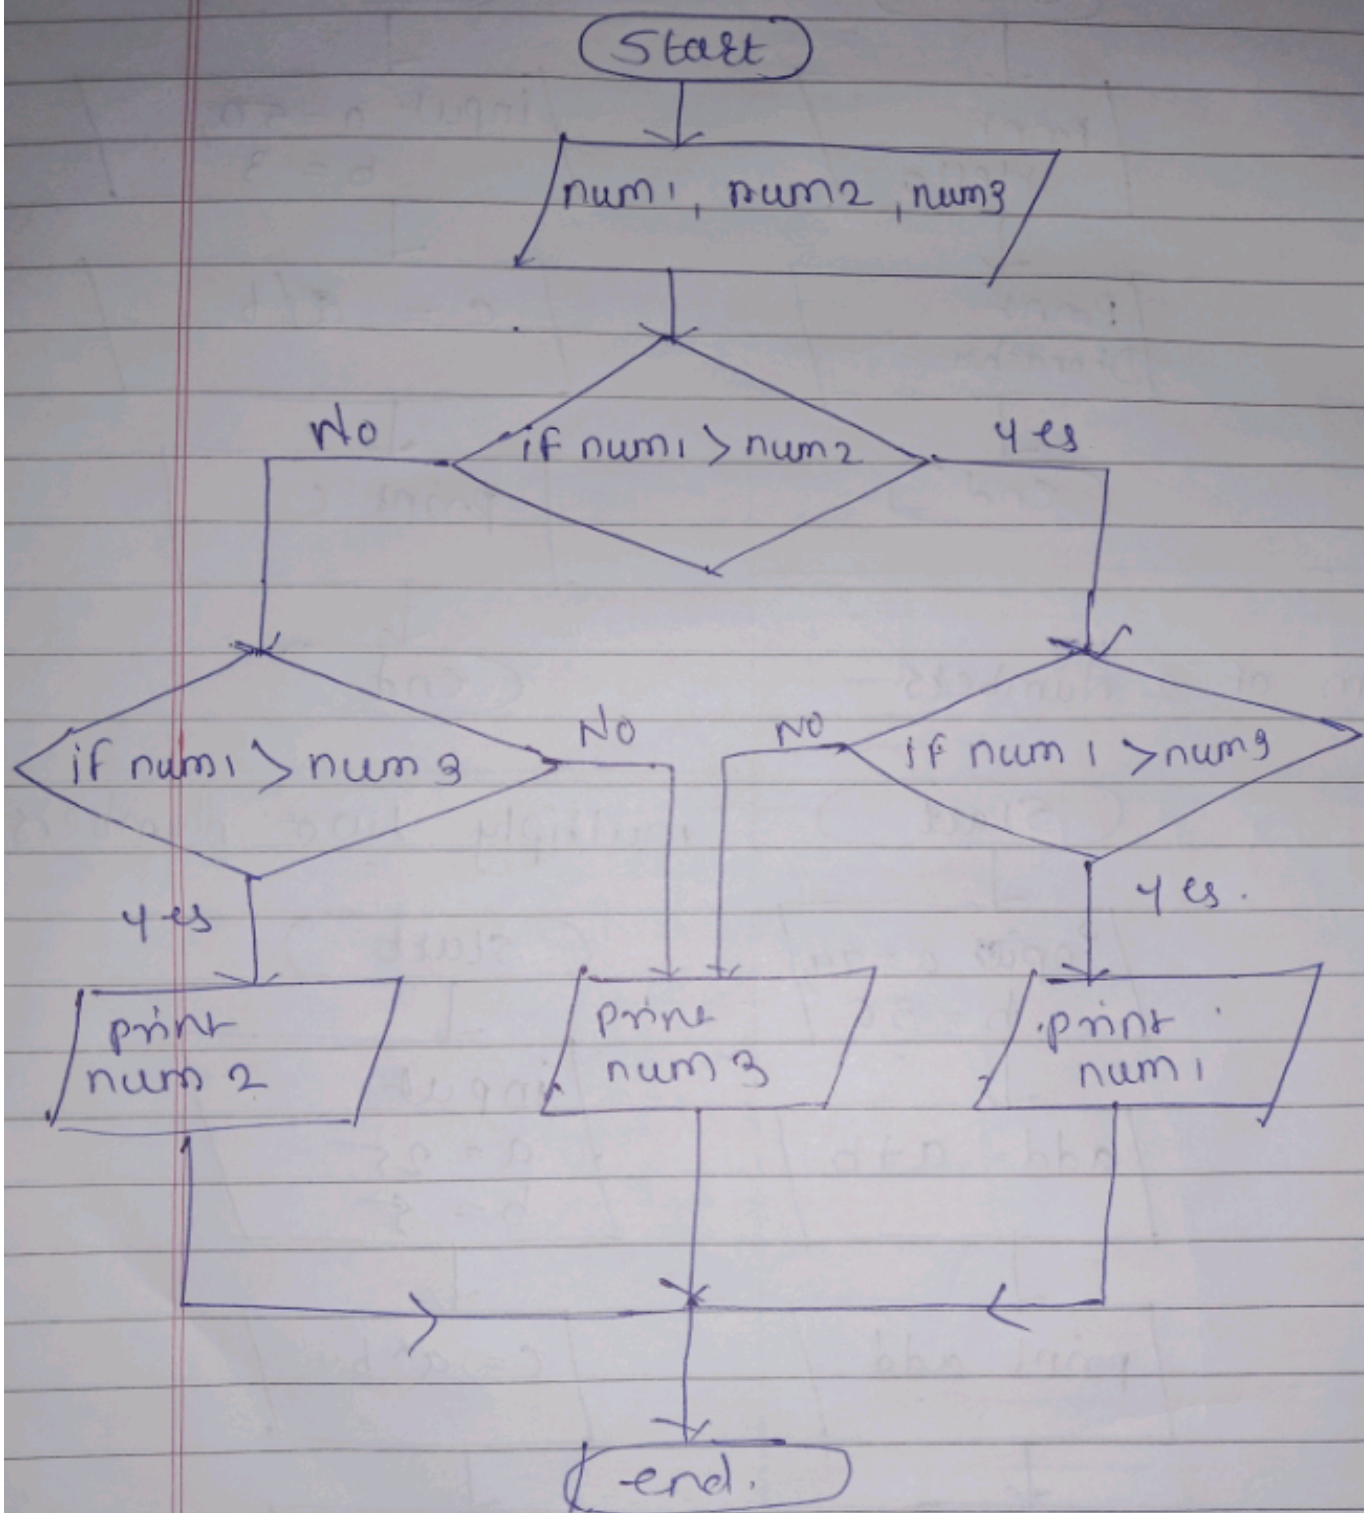 Start
num1, num2, num3
if num1 > num2
No
yes
if num1 > num3
No
NO
if num1 > num3
yes
yes.
print
num 2
print
num 3
print
num 1
end.